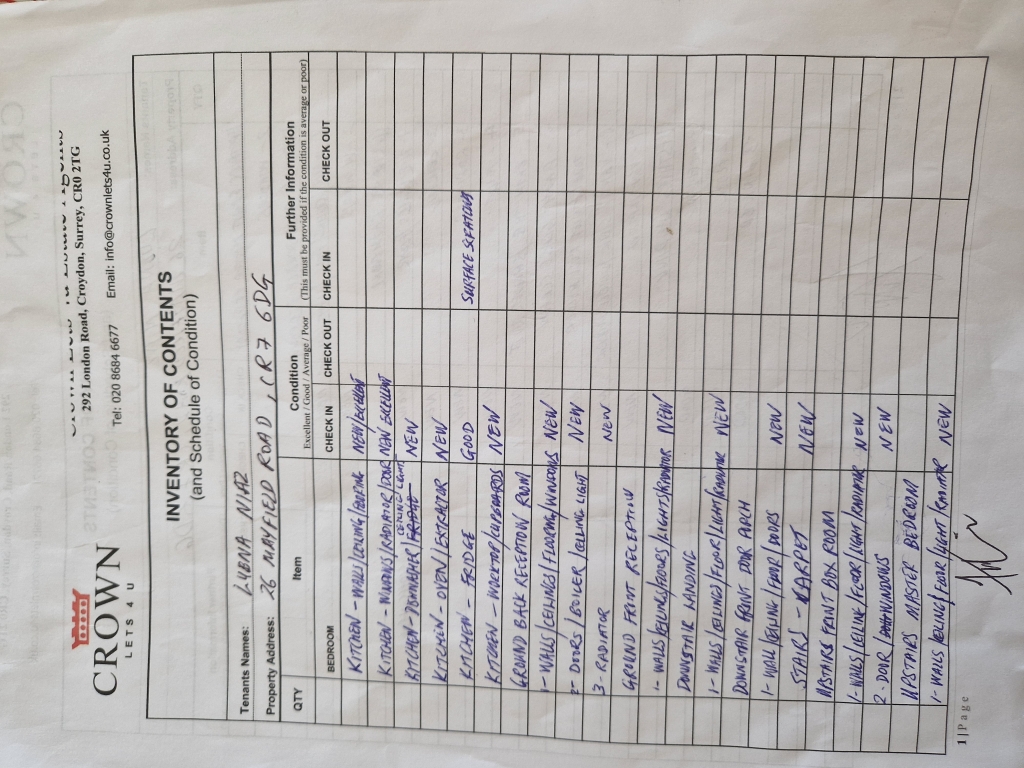 CROWN
LETS 4 U
Crown Lets 4u Estate Agents
292 London Road, Croydon, Surrey, CR0 2TG
Tel: 020 8684 6677 Email: info@crownlets4u.co.uk
INVENTORY OF CONTENTS
(and Schedule of Condition)
Tenants Names: LUBNA NIAZ
Property Address: 26 MAYFIELD ROAD, CR7 6DG
QTY Item Condition Further Information
Excellent / Good / Average / Poor (This must be provided if the condition is average or poor)
BEDROOM CHECK IN CHECK OUT CHECK IN CHECK OUT
KITCHEN - WALLS/CEILING/ NEW/EXCELLENT
KITCHEN - WINDOWS/RADIATOR/DOOR NEW/EXCELLENT
KITCHEN - CEILING LIGHT NEW
KITCHEN - OVEN/EXTCATOR NEW
KITCHEN - FRIDGE GOOD SURFACE SCRATCHES
KITCHEN - WORKTOP/CUPBOARDS NEW
GROUND BACK RECEPTION ROOM
1- WALLS/CEILINGS/FLOORING/WINDOWS NEW
2- DOORS/BOILER/CEILING LIGHT NEW
3- RADIATOR NEW
GROUND FRONT RECEPTION
1- WALLS/CEILINGS/FLOORS/LIGHTS/RADIATOR NEW
DOWNSTAIR LANDING
1- WALLS/CEILING/FLOOR/LIGHT/RADIATOR NEW
DOWNSTAIR FRONT DOOR PORCH
1- WALL/CEILING/FLOOR/DOORS NEW
STAIRS - CARPET NEW
UPSTAIRS FRONT BOX ROOM
1- WALLS/CEILING/FLOOR/LIGHT/RADIATOR NEW
2- DOOR/WINDOWS NEW
UPSTAIRS MASTER BEDROOM
1- WALLS CEILING/FLOOR/LIGHT/RADIATOR NEW
1 | Page